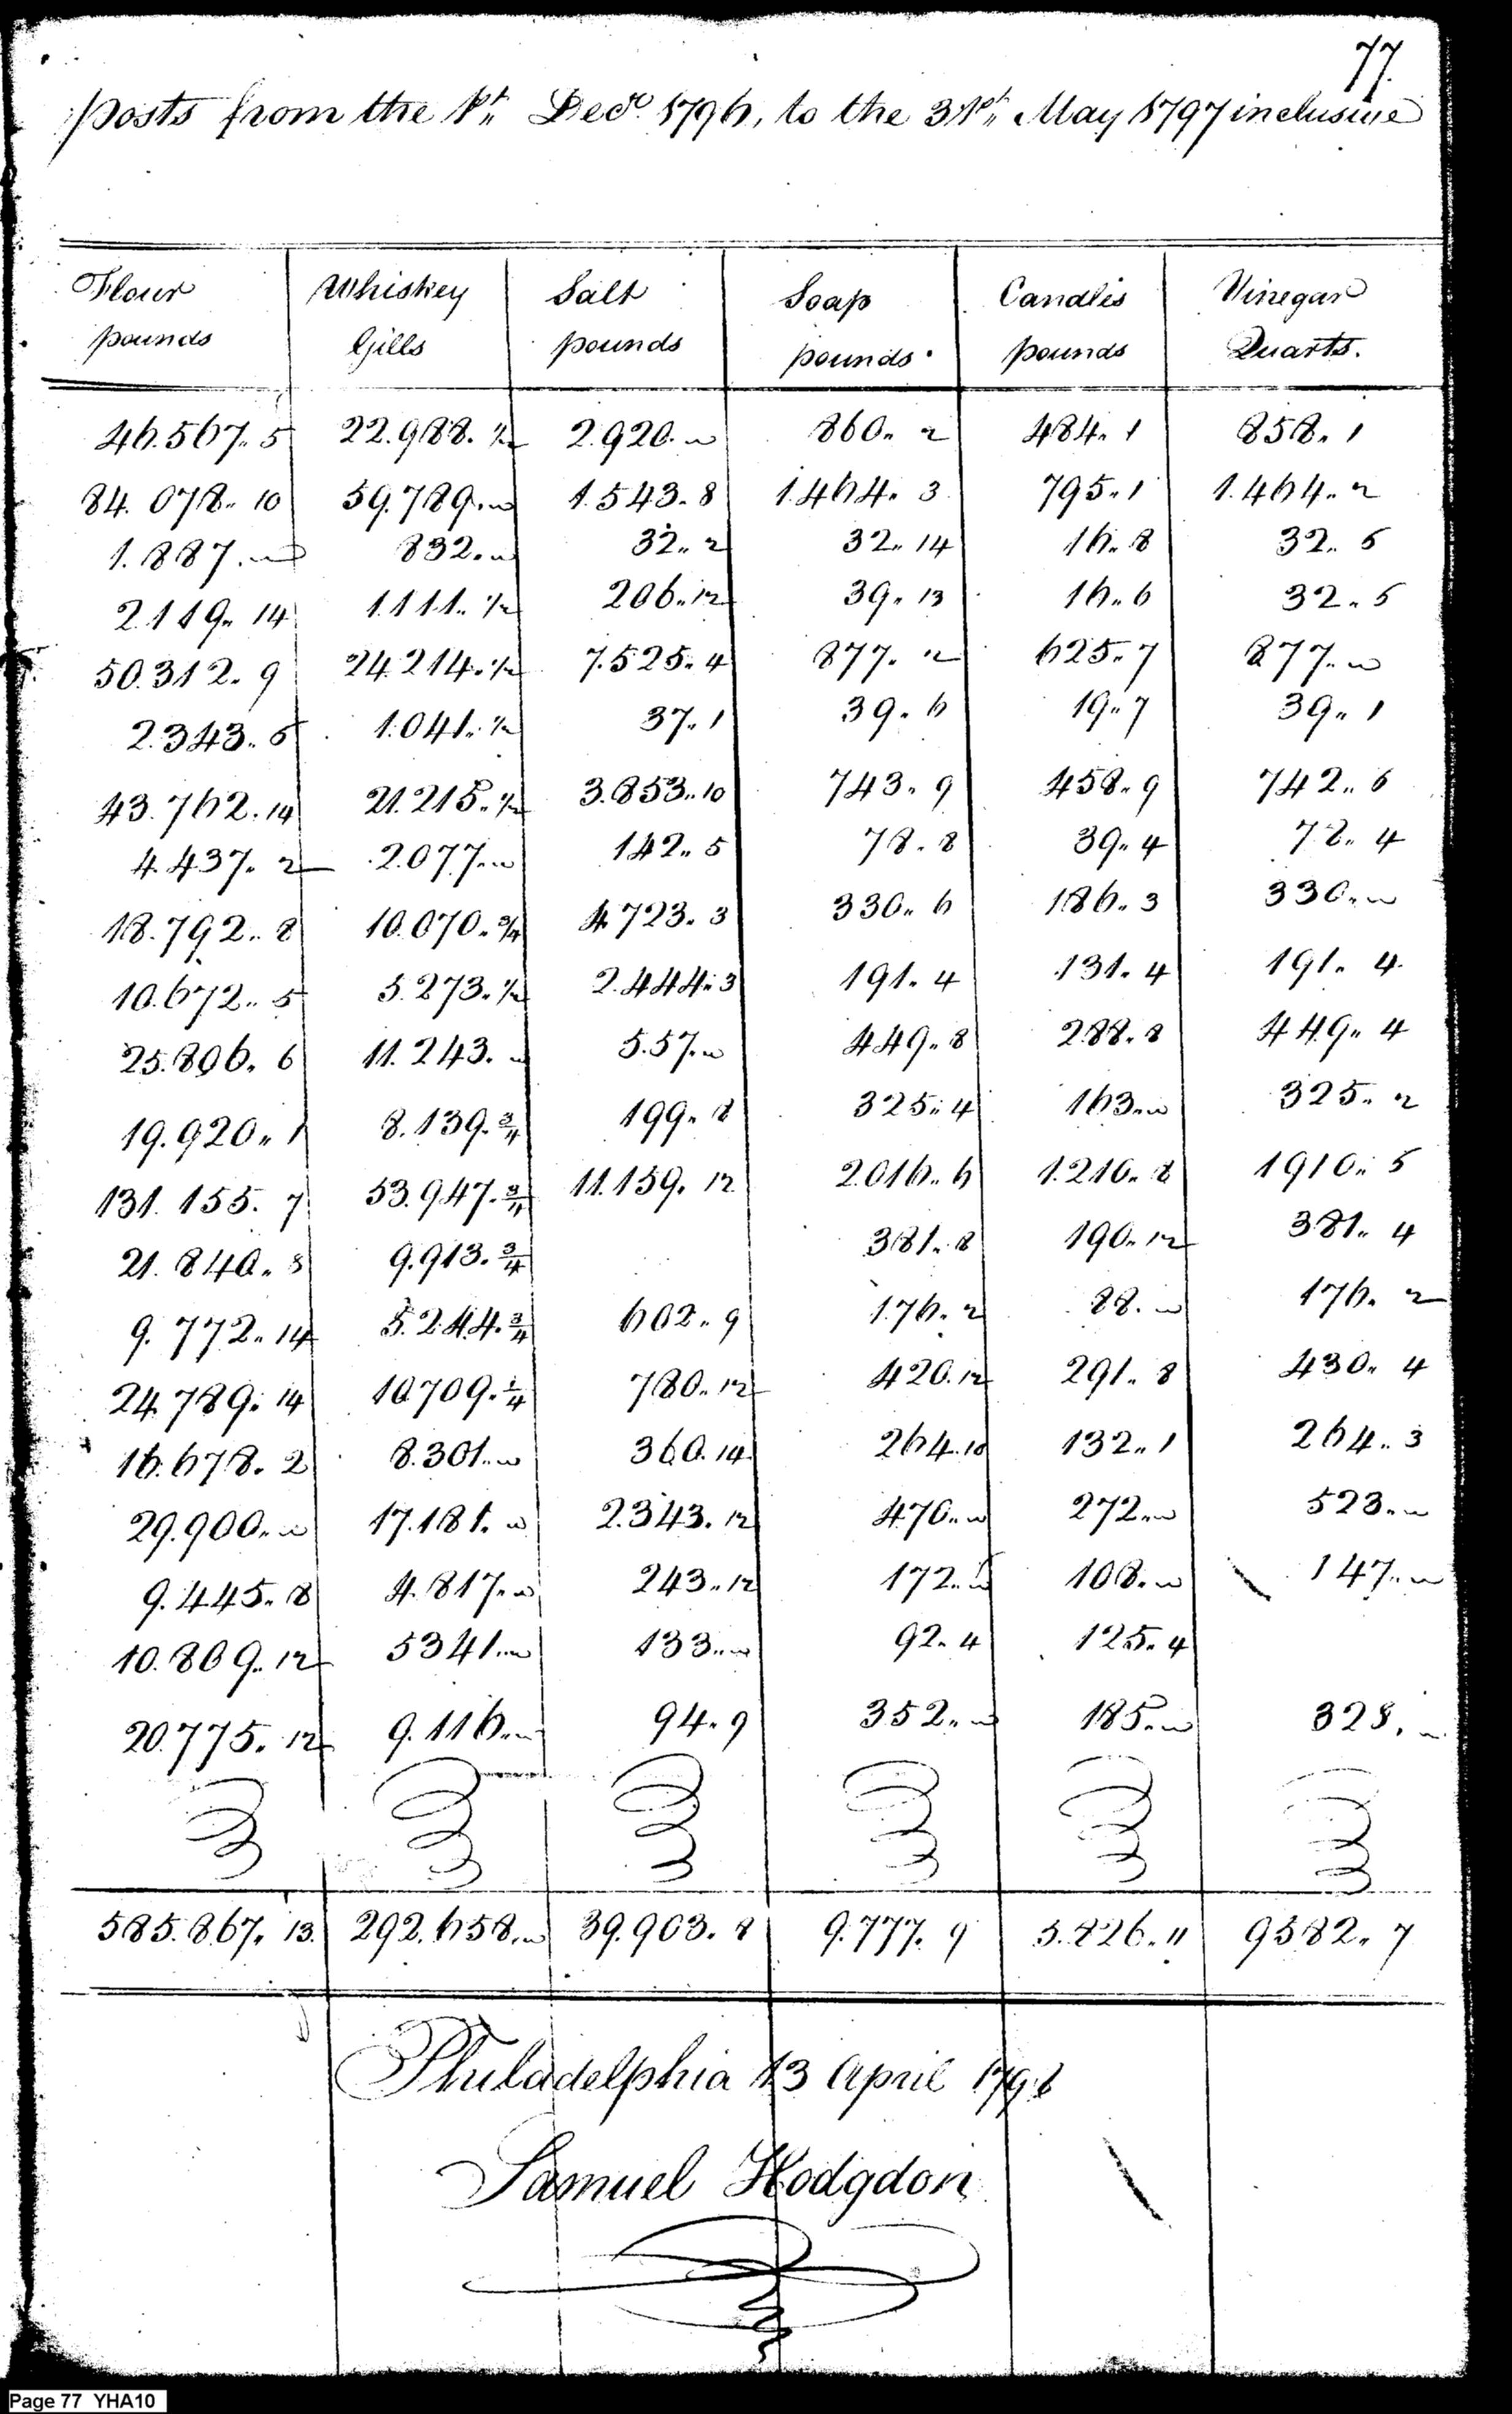 77.
posts from the 1st Decr. 1796, to the 31st May 1797 inclusive
Flour Whiskey Salt Soap Candles Vinegar
pounds Gills pounds pounds pounds Quarts.
46.567.. 5 22.988. 1/2 2.920. .. 860.. 2 484. 1 858. 1
84.078.. 10 59.789. .. 1.543. 8 1.464. 3 795. 1 1.464. 2
1.887. .. 832. .. 32.. 2 32. 14 16. 8 32. 5
2.119. 14 1.111. 1/2 206. 12 39. 13 16. 6 32. 5
50.312. 9 24.214. 1/2 7.525. 4 877. 2 625. 7 877. ..
2.343. 5 1.041. 1/2 37. 1 39. 6 19. 7 39. 1
43.762. 14 21.215. 1/2 3.853. 10 743. 9 458. 9 742. 6
4.437. 2 2.077. .. 142. 5 78. 8 39. 4 78. 4
18.792. 8 10.070. 3/4 4.723. 3 330. 6 186. 3 330. ..
10.672. 5 5.273. 1/2 2.444. 3 191. 4 131. 4 191. 4
25.806. 6 11.243. .. 5.57. .. 449. 8 288. 8 449. 4
19.920. 1 8.139. 3/4 199. 8 325. 4 163. .. 325. 2
131.155. 7 53.947. 3/4 11.159. 12 2.016. 6 1.210. 8 1910. 5
21.840. 8 9.913. 3/4 381. 8 190. 12 381. 4
9.772. 14 5.244. 3/4 602. 9 176. 2 88. .. 176. 2
24.789. 14 10709. 1/4 780. 12 420. 12 291. 8 430. 4
16.678. 2 8.301. .. 360. 14 264. 10 132. 1 264. 3
29.900. .. 17.181. .. 2.343. 12 470. .. 272. .. 523. ..
9.445. 8 4.817. .. 243. 12 172. .. 108. .. 147. ..
10.809. 12 5341. .. 133. .. 92. 4 125. 4
20.775. 12 9.116. .. 94. 9 352. .. 185. .. 328. ..
585.867. 13. 292.658. .. 39.903. 8 9.777. 9 5.826. 11 9582. 7
Philadelphia 13 April 1798
Samuel Hodgdon
Page 77 YHA10